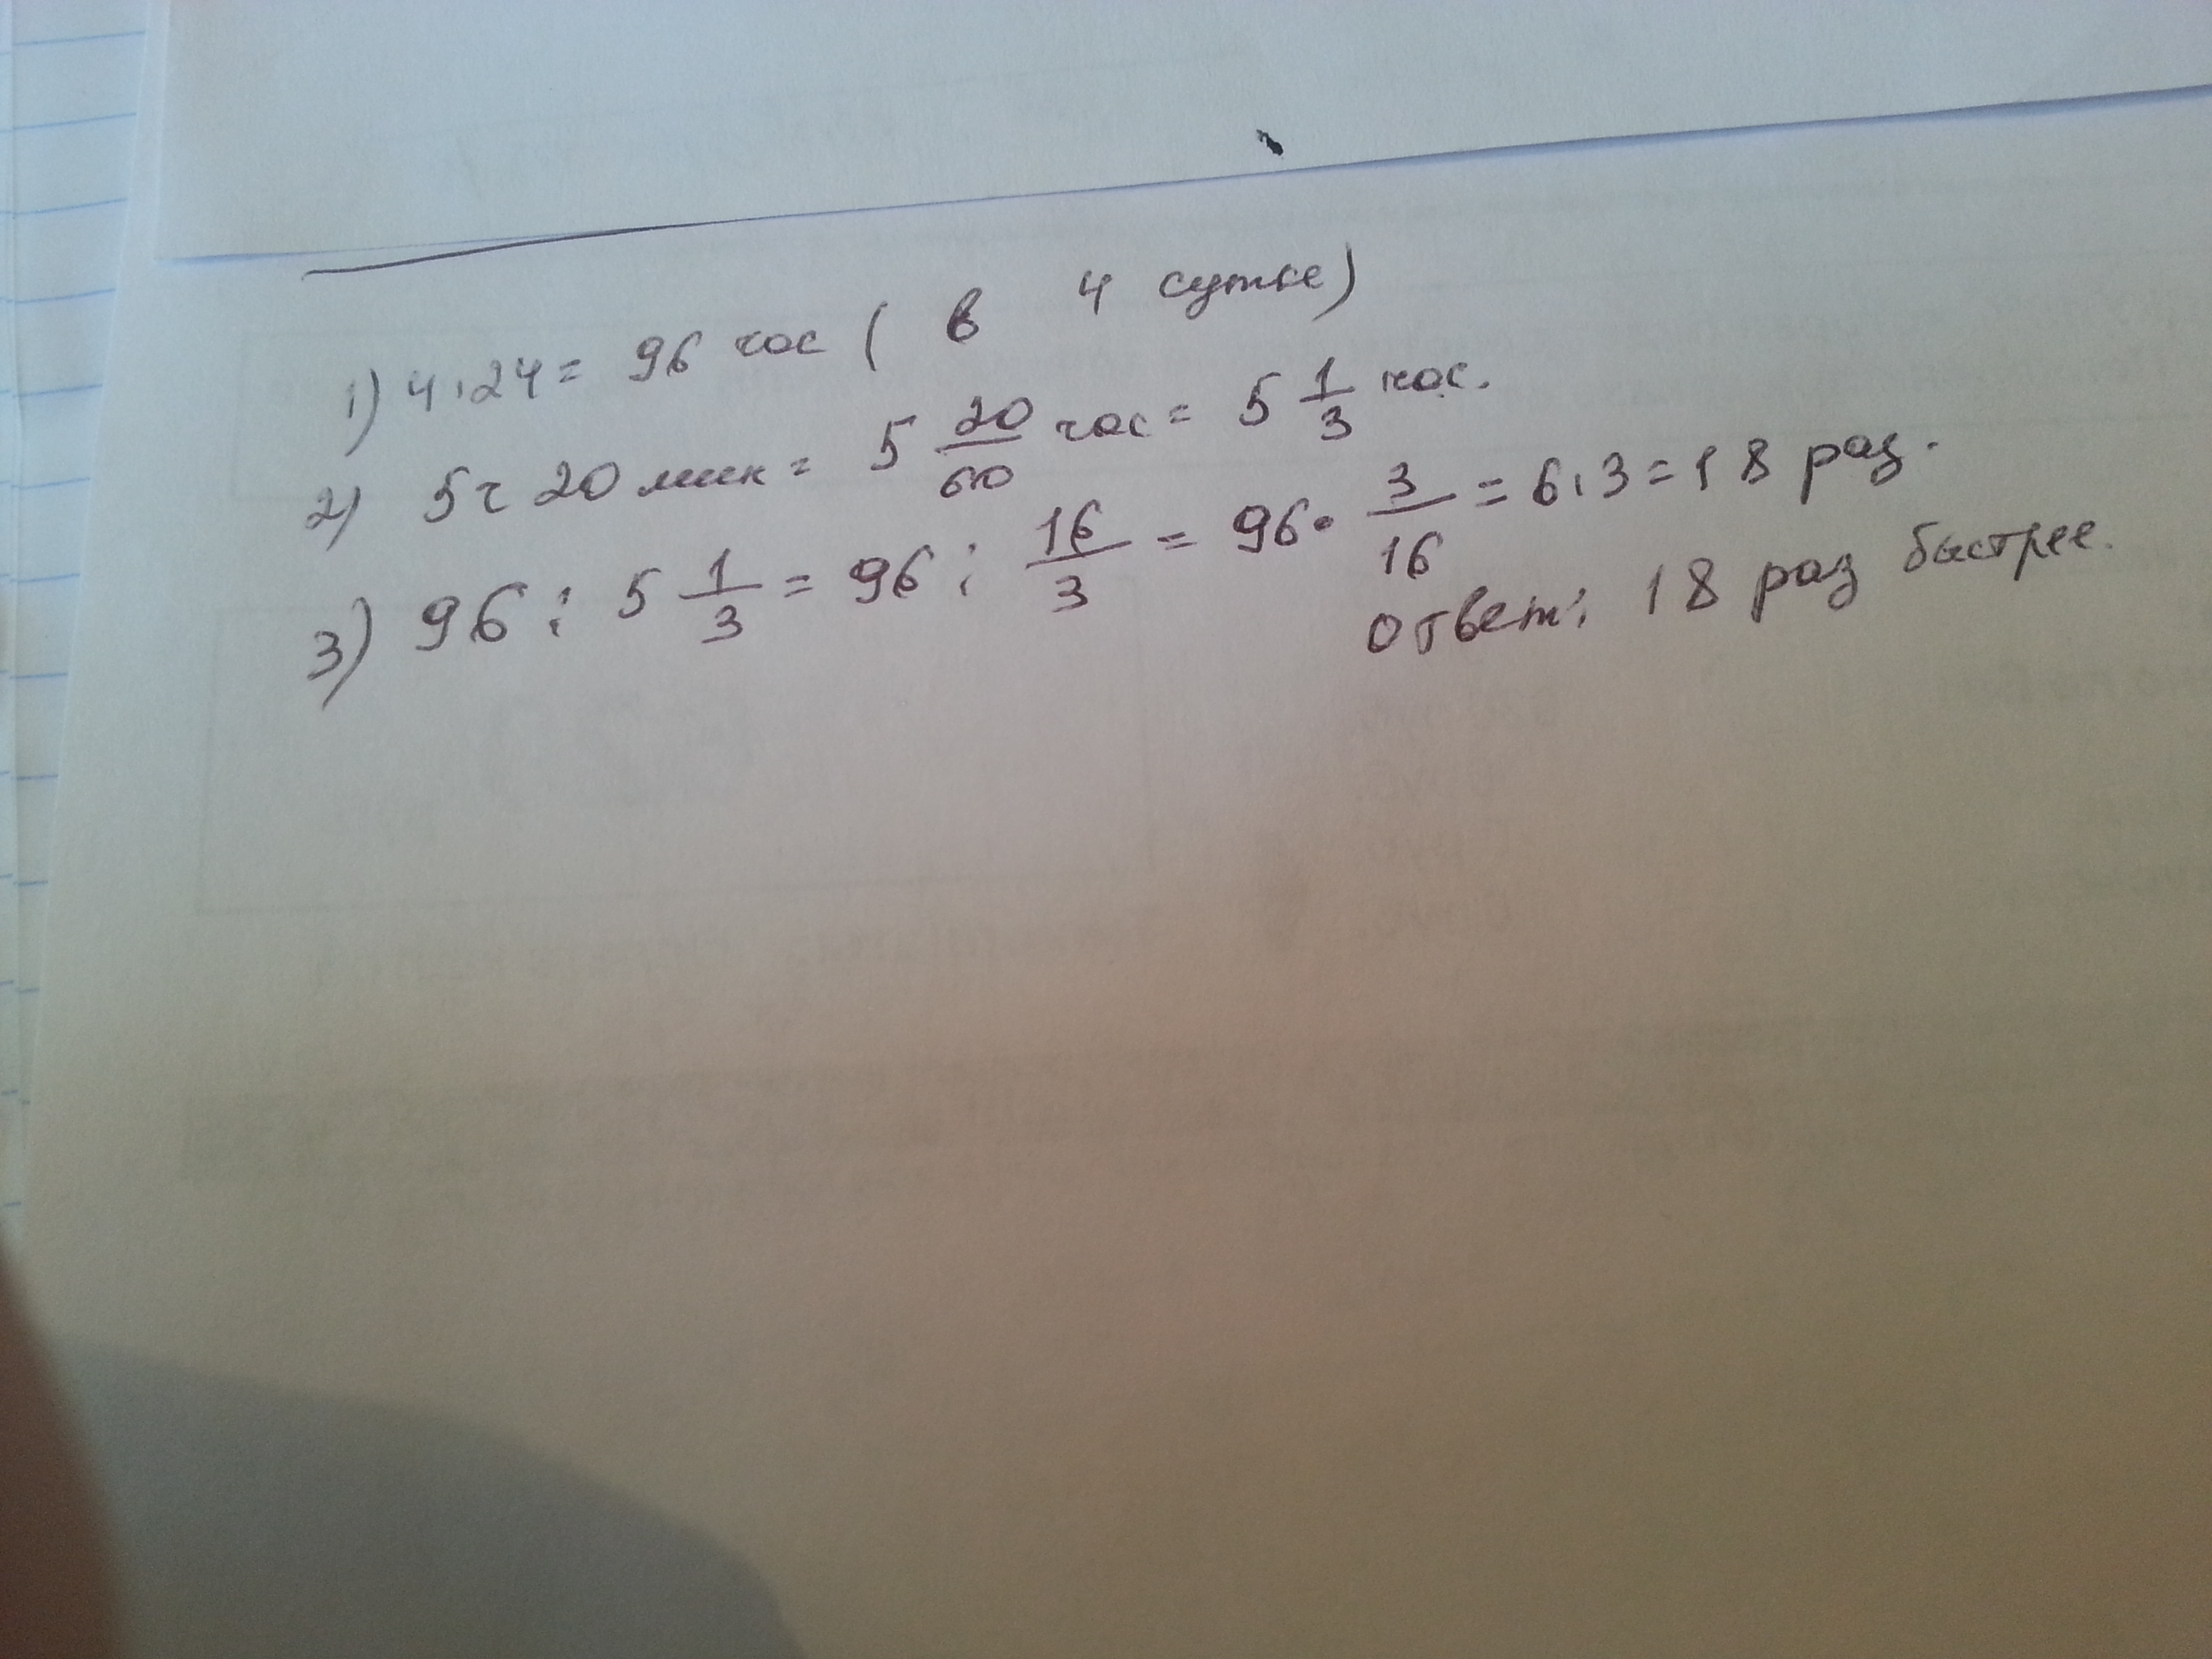 1) 4·24= 96 час ( в 4 сутке)
2) 5ч 20 мин = 5 20/60 час = 5 1/3 час.
3) 96 : 5 1/3 = 96 : 16/3 = 96 · 3/16 = 6·3 = 18 раз.
Ответ: 18 раз быстрее.